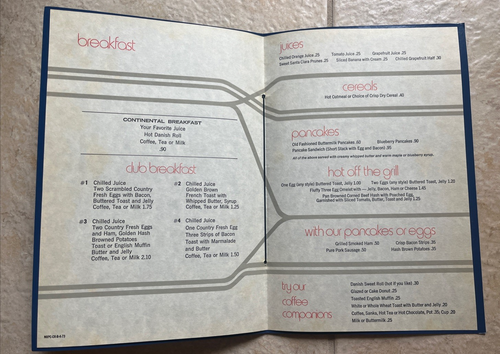 breakfast
CONTINENTAL BREAKFAST
Your Favorite Juice
Hot Danish Roll
Coffee, Tea or Milk
.90
club breakfast
#1 Chilled Juice
Two Scrambled Country
Fresh Eggs with Bacon,
Buttered Toast and Jelly
Coffee, Tea or Milk 1.75
#2 Chilled Juice
Golden Brown
French Toast with
Whipped Butter, Syrup
Coffee, Tea or Milk 1.25
#3 Chilled Juice
Two Country Fresh Eggs
and Ham, Golden Hash
Browned Potatoes
Toast or English Muffin
Butter and Jelly
Coffee, Tea or Milk 2.10
#4 Chilled Juice
One Country Fresh Egg
Three Strips of Bacon
Toast with Marmalade
and Butter
Coffee, Tea or Milk 1.50
juices
Chilled Orange Juice .25 Tomato Juice .25 Grapefruit Juice .25
Sweet Santa Clara Prunes .25 Sliced Banana with Cream .25 Chilled Grapefruit Half .30
cereals
Hot Oatmeal or Choice of Crisp Dry Cereal .40
pancakes
Old Fashioned Buttermilk Pancakes .60 Blueberry Pancakes .90
Pancake Sandwich (Short Stack with Egg and Bacon) .90
All of the above served with creamy whipped butter and warm maple or blueberry syrup.
hot off the grill
One Egg (any style) Buttered Toast, Jelly 1.00 Two Eggs (any style) Buttered Toast, Jelly 1.20
Fluffy Three Egg Omelet with — Jelly, Bacon, Ham or Cheese 1.40
Pan Browned Corned Beef Hash with Poached Egg,
Garnished with Sliced Tomato, Butter, Toast and Jelly 1.25
with our pancakes or eggs
Grilled Smoked Ham .50 Crisp Bacon Strips .30
Pure Pork Sausage .50 Hash Brown Potatoes .35
try our
coffee
companions
Danish Sweet Roll (hot if you like) .30
Glazed or Cake Donut .25
Toasted English Muffin .25
White or Whole Wheat Toast with Butter and Jelly .20
Coffee, Sanka, Hot Tea or Hot Chocolate, Pot .35; Cup .20
Milk or Buttermilk .25